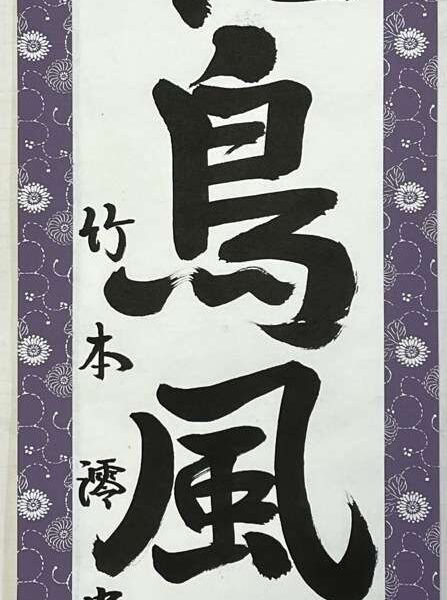 鳥風
竹本澪